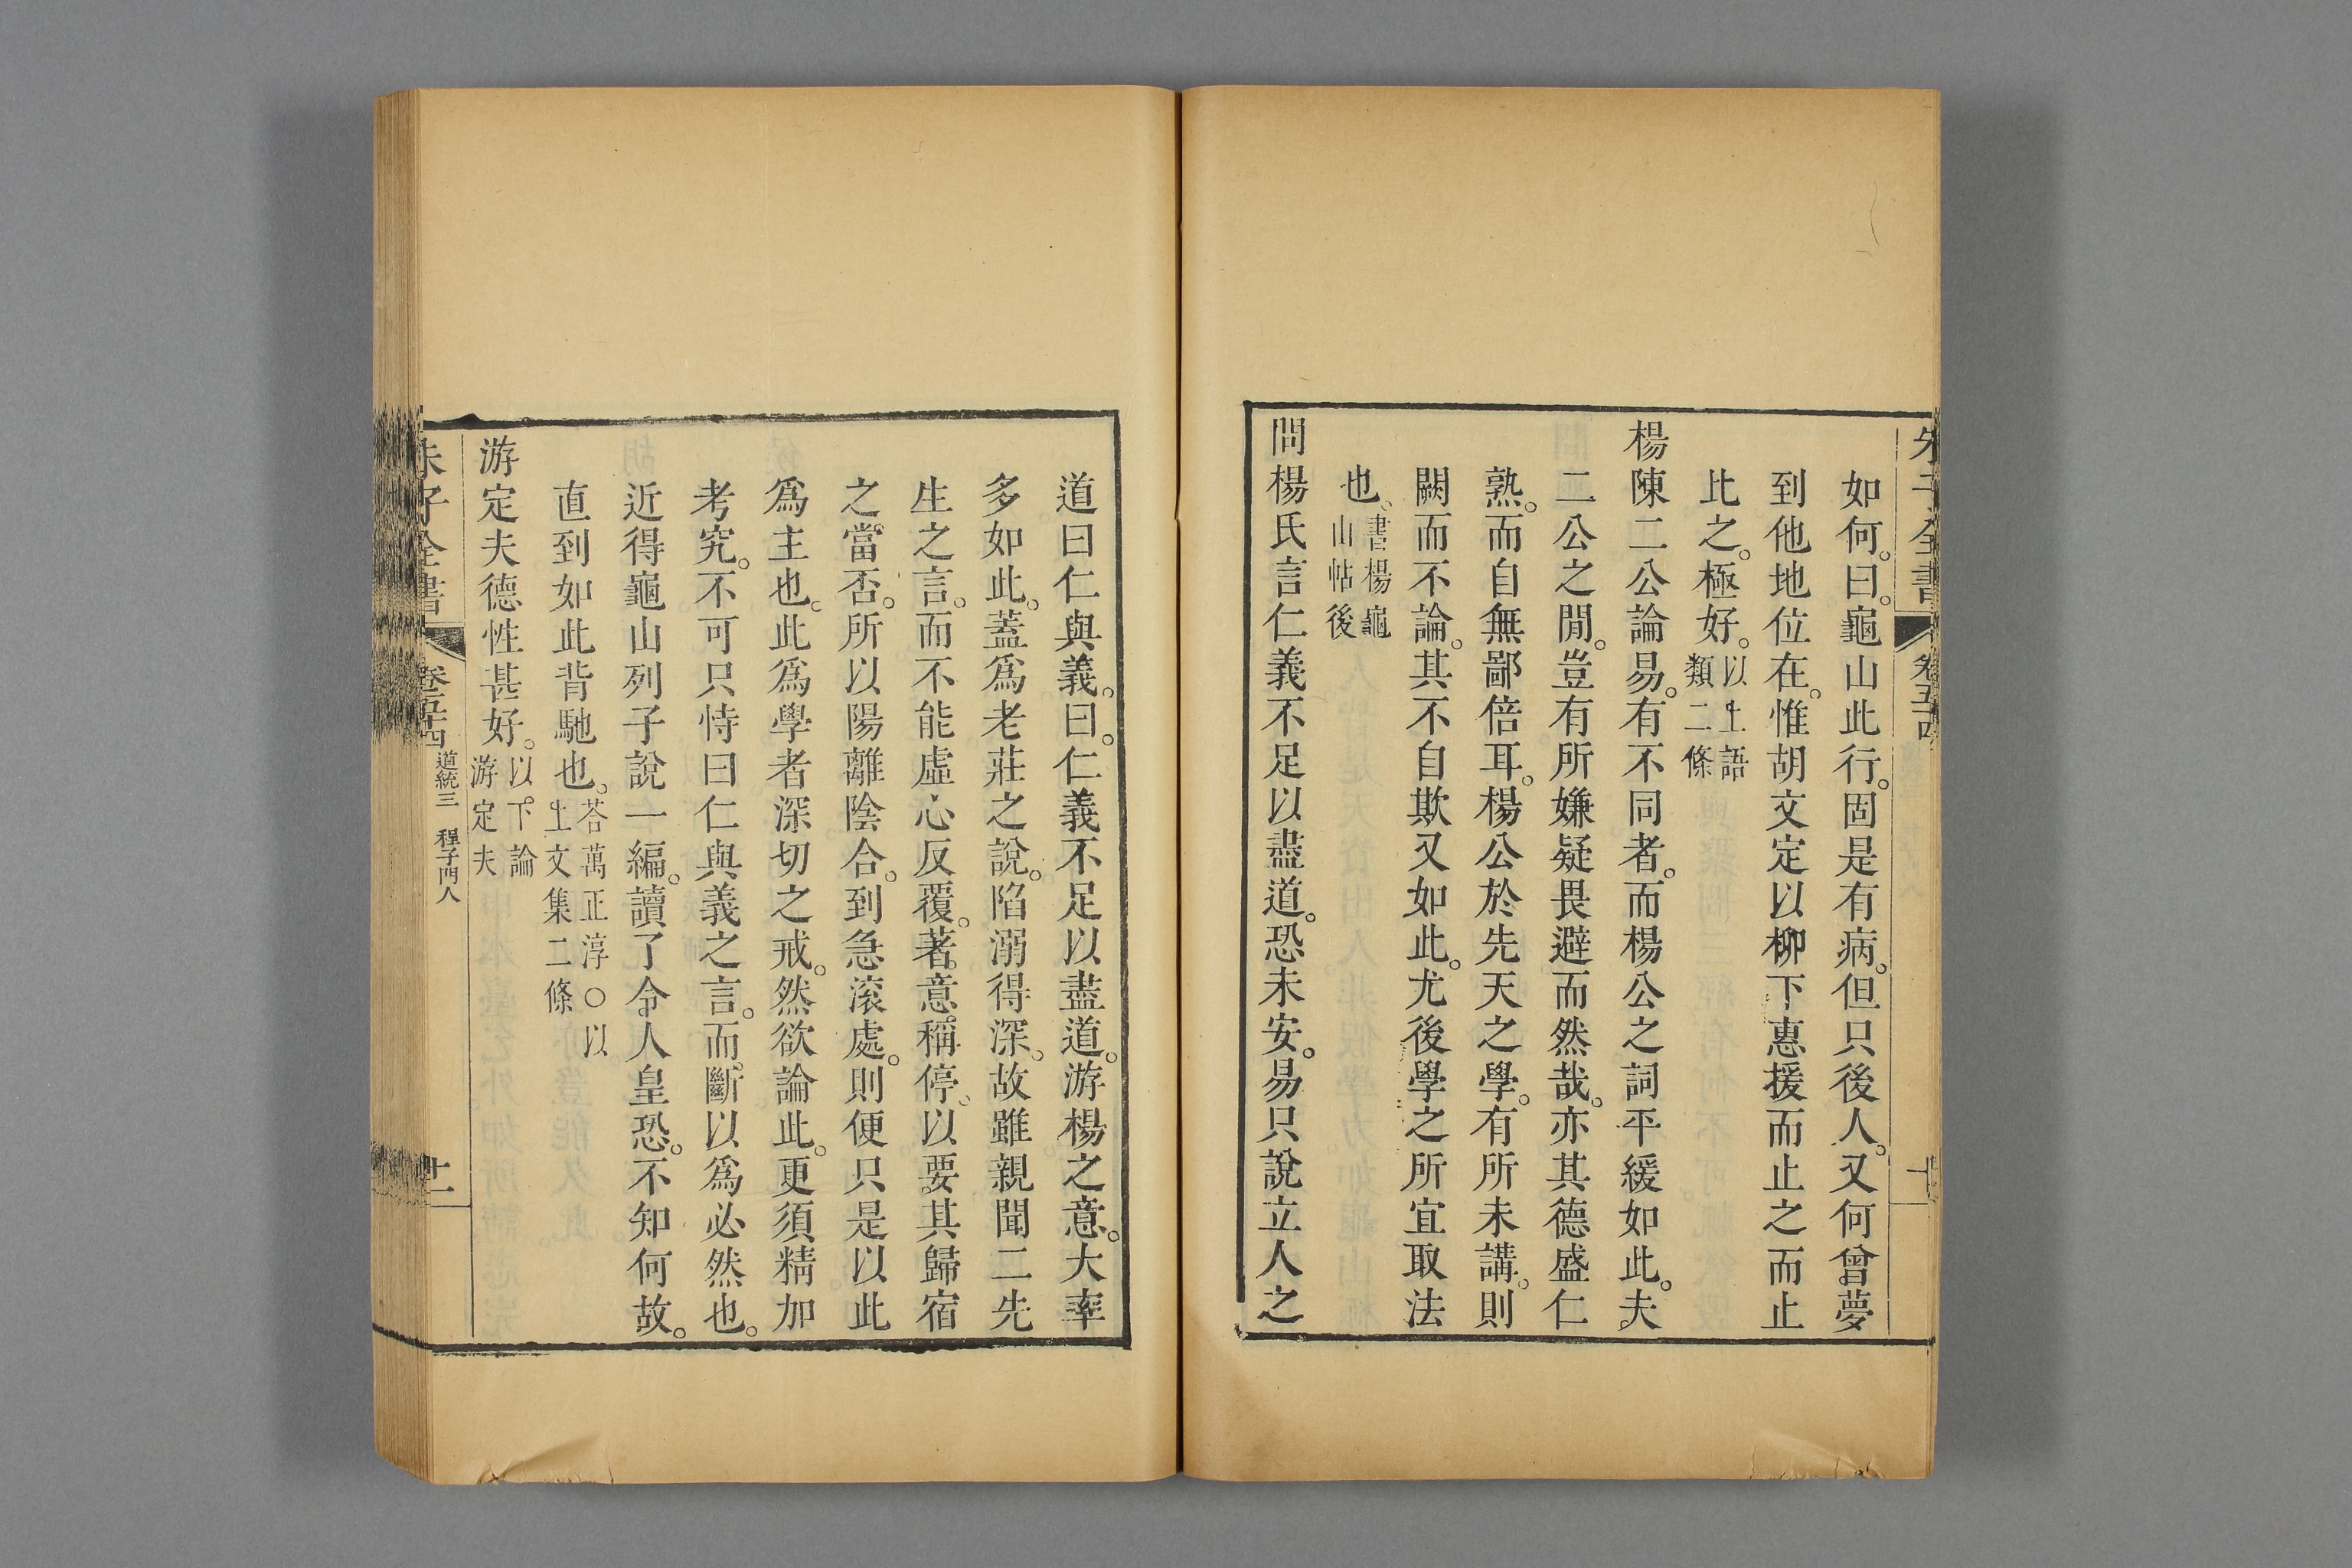 朱子全書 卷五十四 十
如何。曰。龜山此行。固是有病。但只後人。又何曾夢
到他地位在。惟胡文定以柳下惠援而止之而止
比之。極好。以上語類二條
楊陳二公論易。有不同者。而楊公之詞平緩如此。夫
二公之閒。豈有所嫌疑畏避而然哉。亦其德盛仁
熟。而自無鄙倍耳。楊公於先天之學。有所未講。則
闕而不論。其不自欺又如此。尤後學之所宜取法
也。書楊龜山帖後
問楊氏言仁義不足以盡道。恐未安。易只說立人之
道曰仁與義。曰。仁義不足以盡道。游楊之意。大率
多如此。蓋爲老莊之說。陷溺得深。故雖親聞二先
生之言。而不能虛心反覆。著意稱停。以要其歸宿
之當否。所以陽離陰合。到急滚處。則便只是以此
爲主也。此爲學者深切之戒。然欲論此。更須精加
考究。不可只恃曰仁與義之言。而斷以爲必然也。
近得龜山列子說一編。讀了令人皇恐。不知何故。
直到如此背馳也。荅萬正淳○以上文集二條
游定夫德性甚好。以下論游定夫
朱子全書 卷五十四 道統三 程子門人 十一